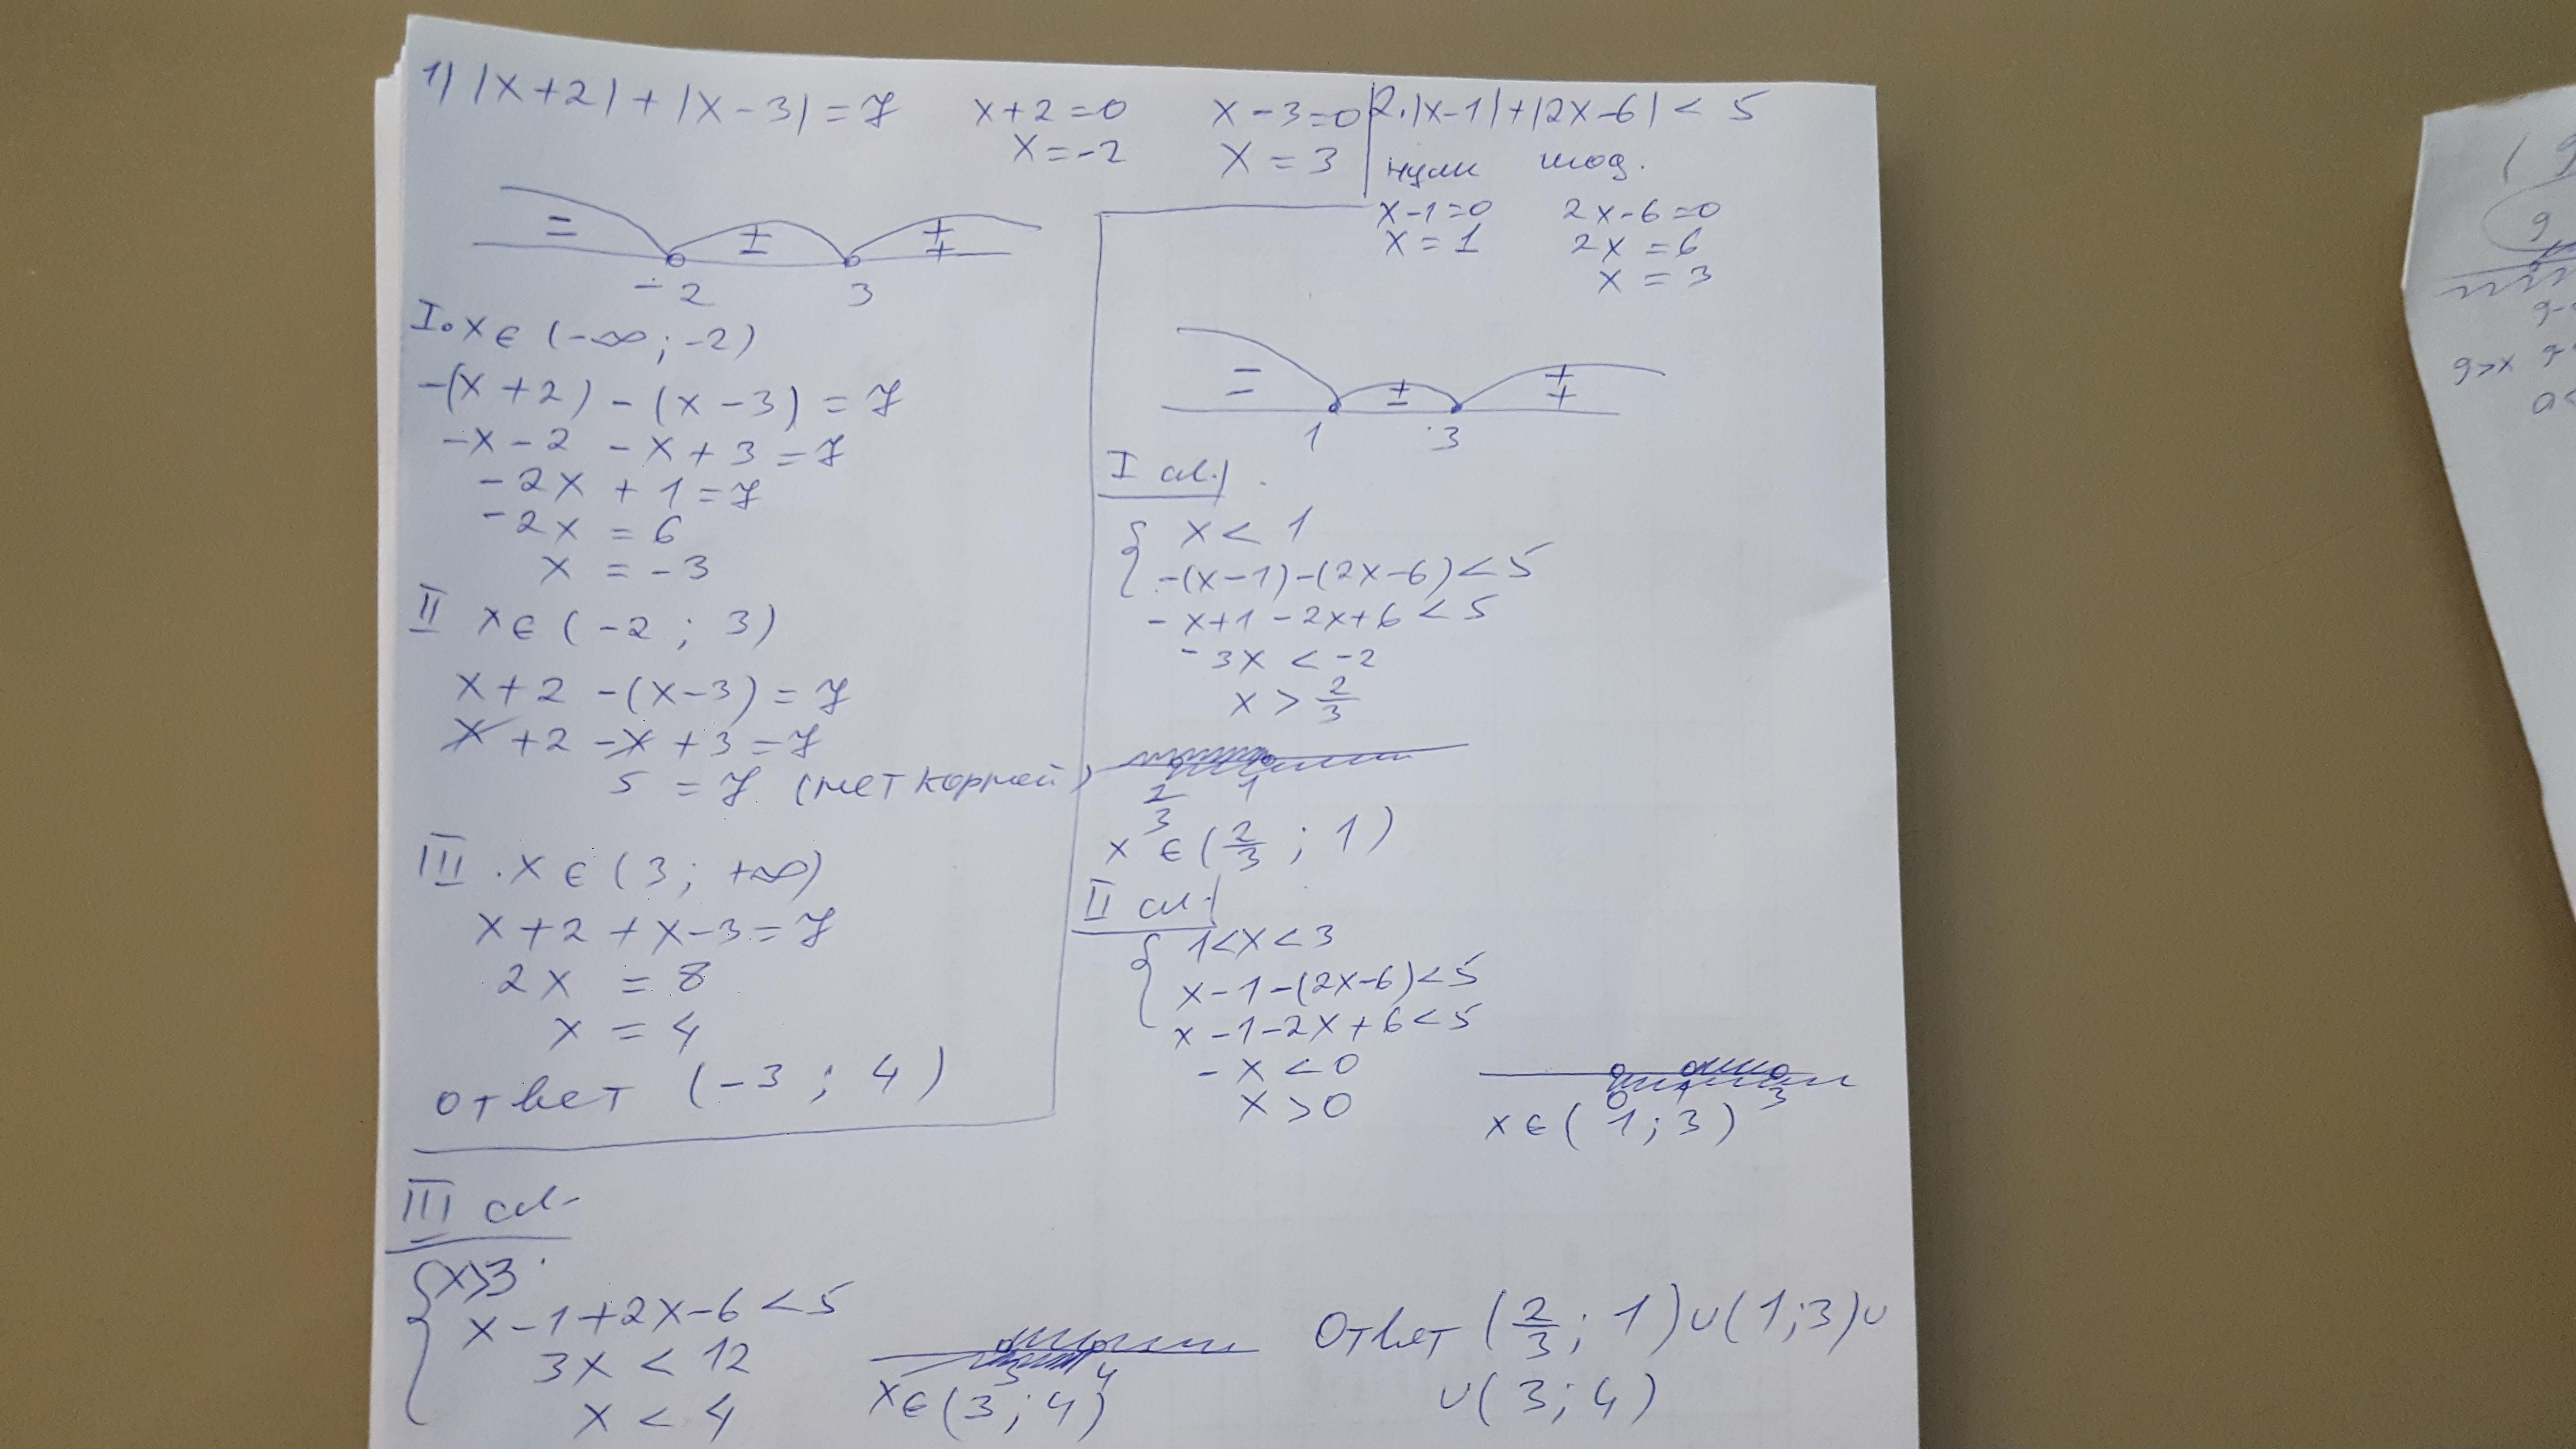 1) |x+2| + |x-3| = 7
x+2=0
x=-2
x-3=0
x=3
=
±
+
+
-2
3
I. x ∈ (-∞; -2)
-(x+2) - (x-3) = 7
-x-2 -x+3=7
-2x+1=7
-2x=6
x=-3
II x ∈ (-2; 3)
x+2 -(x-3) = 7
x+2-x+3=7
5=7 (нет корней)
III. x ∈ (3; +∞)
x+2+x-3=7
2x=8
x=4
ответ (-3; 4)
2. |x-1| + |2x-6| < 5
нули мод.
x-1=0
x=1
2x-6=0
2x=6
x=3
-
-
±
+
+
1
3
I сл.
{ x < 1
-(x-1)-(2x-6)<5
-x+1-2x+6<5
-3x < -2
x > 2/3
2/3 1
x ∈ (2/3; 1)
II сл.
{ 1<x<3
x-1-(2x-6)<5
x-1-2x+6<5
-x<0
x>0
0 1 3
x ∈ (1; 3)
III сл.
{ x>3
x-1+2x-6<5
3x < 12
x < 4
3 4
x ∈ (3; 4)
Ответ (2/3; 1) ∪ (1; 3) ∪
∪ (3; 4)